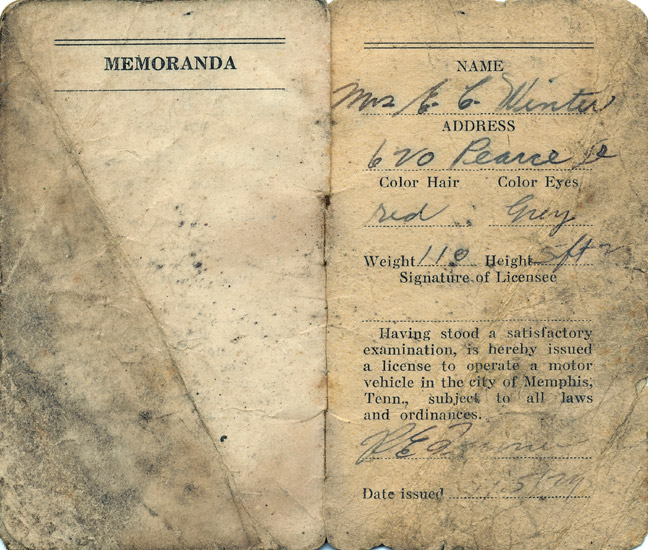 MEMORANDA
NAME
Mrs E. C. Winter
ADDRESS
620 Pearce
Color Hair Color Eyes
red Grey
Weight 110 Height 5ft 2
Signature of Licensee
Having stood a satisfactory
examination, is hereby issued
a license to operate a motor
vehicle in the city of Memphis,
Tenn., subject to all laws
and ordinances.
Date issued